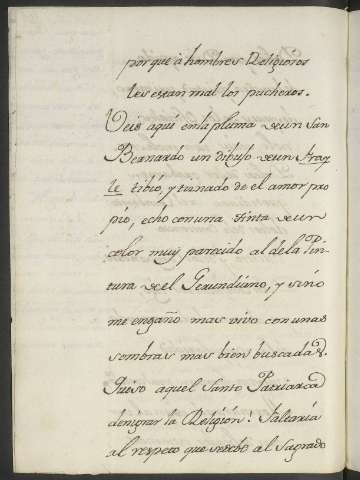 porque à hombres Religiosos
les estan mal los pucheros.
Veis aquí en la pluma de un San
Bernardo un dibujo de un Fray
le tibio, y tiznado de el amor pro
pio, echo con una tinta de un
color muy parecido al de la Pin
tura de el Gerundiano, y si no
me engaño mas vivo con unas
sombras mas bien buscadas.
Quiso aquel Santo Patriarca
denigrar la Religión? Faltaría
al respeto que se debe al Sagrado